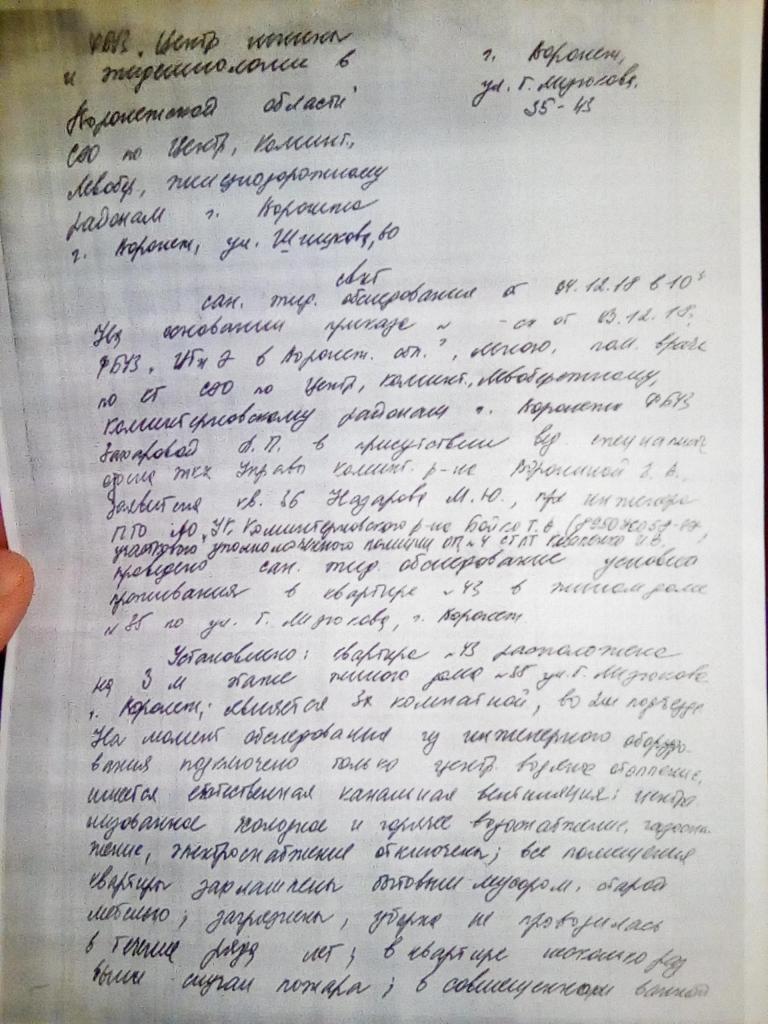 ФБУЗ „Центр гигиены
и эпидемиологии в
Воронежской области"
СЭО по Центр, Коминт.,
Левобер, железнодорожному
районам г. Воронежа
г. Воронеж, ул. Шишкова, 60
г. Воронеж,
ул. Г. Лизюкова,
35-43
Акт
сан. эпид. обследования от 04.12.18 в 10
На основании приказа № -он от 03.12.18.
ФБУЗ „ЦГиЭ в Воронеж. обл.", мною, пом. врача
по СЭО по Центр, коминт., Левобережному,
Коминтерновскому районам г. Воронежа ФБУЗ
Захаровой Л.П. в присутствии вед. специалиста
отдела ЖКХ Управы Коминт. р-на
заявителя кв. 36 Назарова М.Ю., инженера
ПТО УК Коминтерновского р-на Бойко Т.В.
участкового уполномоченного полиции ОП №4
проведено сан. эпид. обследование условий
проживания в квартире №43 в жилом доме
№35 по ул. Г. Лизюкова, г. Воронеж
Установлено: квартира №43 расположена
на 3м этаже жилого дома №35 ул. Г. Лизюкова
г. Воронеж, является 3х комнатной, во 2м подъезде
На момент обследования из инженерного оборудо-
вания подключено только центр. водяное отопление,
имеется естественная канальная вентиляция; центра
лизованное холодное и горячее водоснабжение, газосна-
жение, электроснабжение отключены; все помещения
квартиры захламлены бытовым мусором, старой
мебелью; загрязнены, уборка не проводилась
в течение ряда лет; в квартире несколько раз
были случаи пожара; в совмещенном ванной